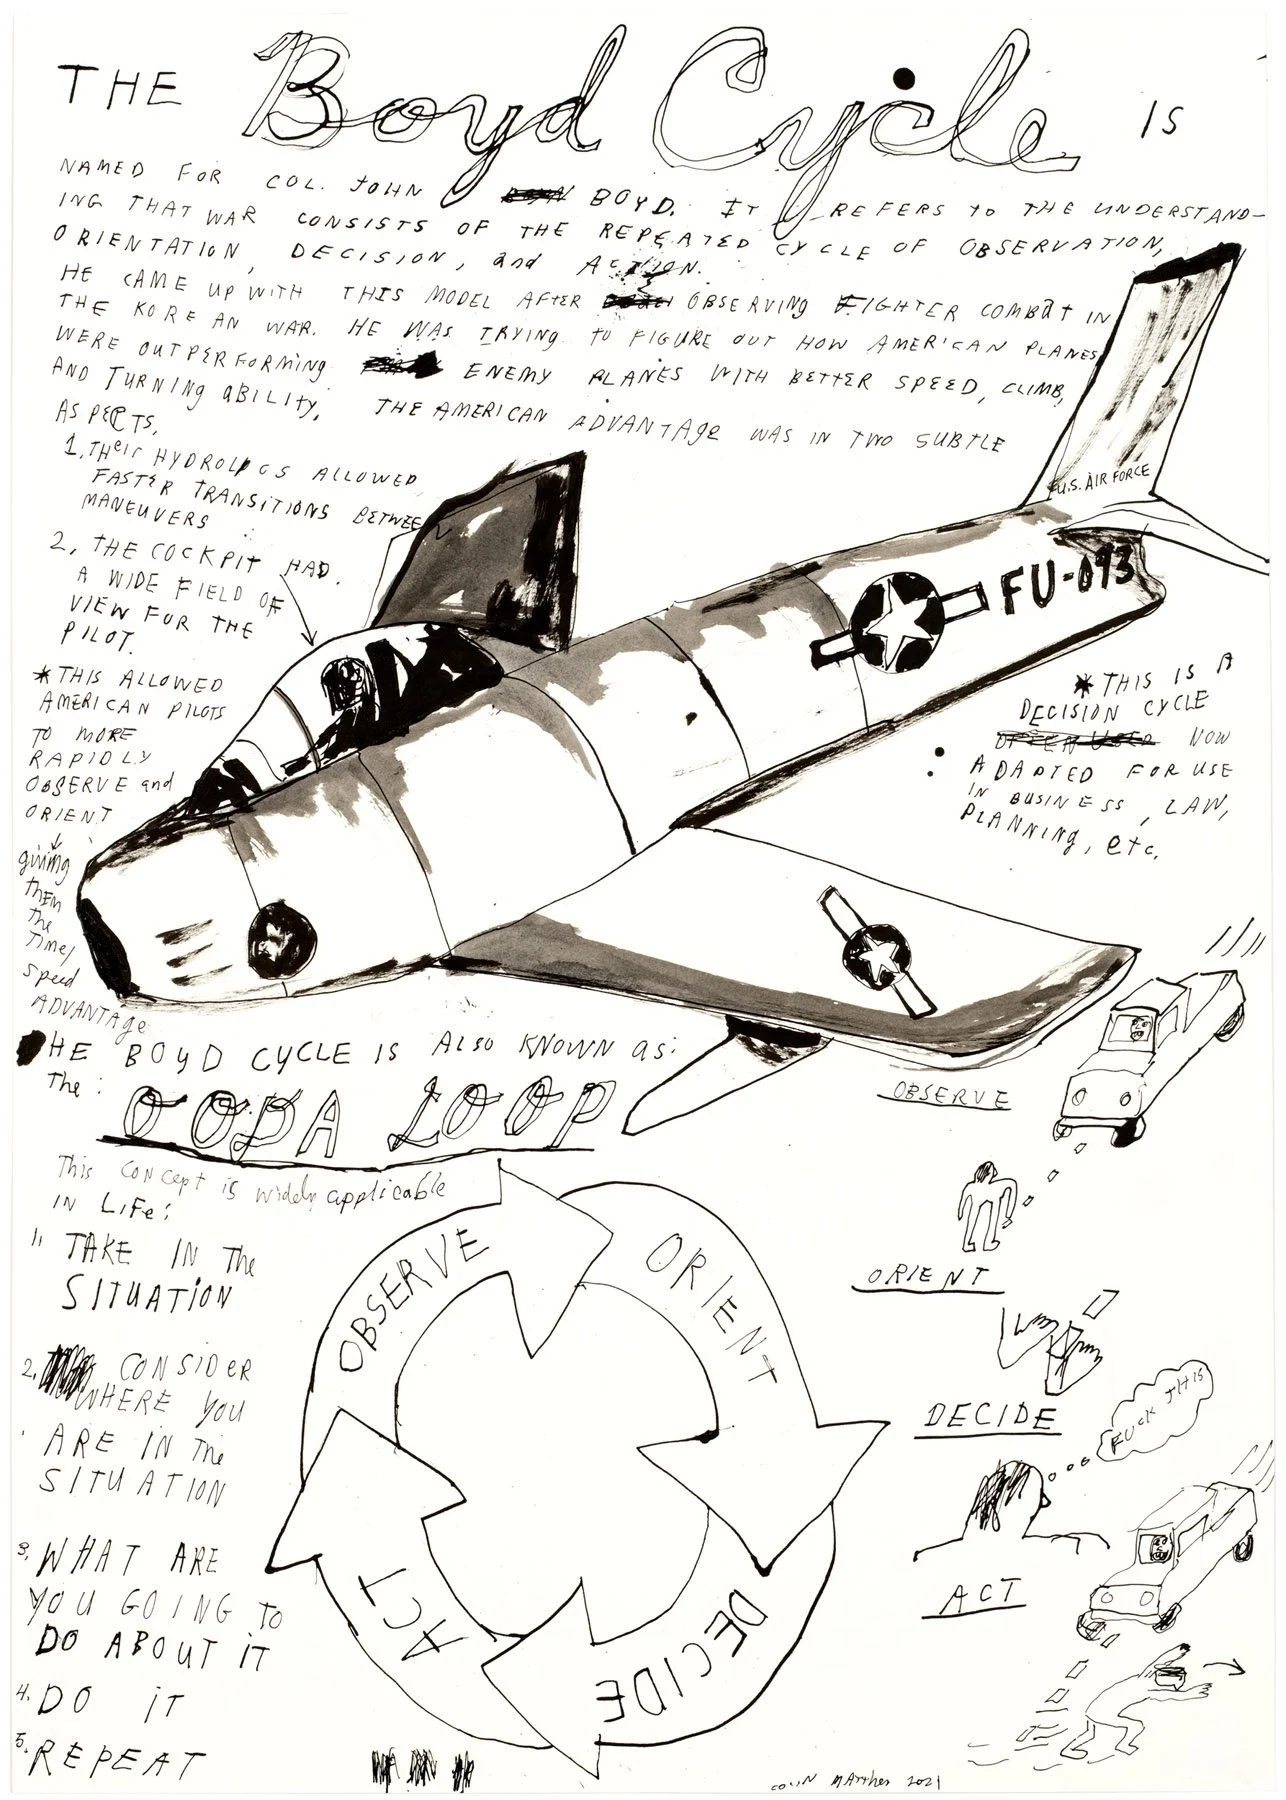 THE Boyd Cycle IS
NAMED FOR COL. JOHN BOYD. IT REFERS to THE UNDERSTAND-
ING THAT WAR CONSISTS OF THE REPEATED CYCLE OF OBSERVATION,
ORIENTATION, DECISION, and ACTION.
HE CAME UP WITH THIS MODEL AFTER OBSERVING FIGHTER COMBAT IN
THE KOREAN WAR. HE WAS TRYING to FIGURE OUT HOW AMERICAN PLANES
WERE OUTPERFORMING ENEMY PLANES WITH BETTER SPEED, CLIMB,
AND TURNING aBILITY. THE AMERICAN ADVANTAGE WAS IN TWO SUBTLE
ASPECTS,
1. THeir HYDROLICS ALLOWED
FASTER TRANSITIONS BETWEEN
MANEUVERS
2. THE COCKPIT HAD
A WIDE FIELD OF
VIEW FOR THE
PILOT.
*THIS ALLOWED
AMERICAN PILOTS
TO MORE
RAPIDLY
OBSERVE and
ORIENT
giving
them
the
Time/
speed
ADVANTAGE
U.S. AIR FORCE
FU-093
*THIS IS A
DECISION CYCLE
NOW
ADAPTED FOR USE
IN BUSINESS, LAW,
PLANNING, etc.
HE BOYD CYCLE IS ALSO KNOWN as:
The:
OODA LOOP
This concept is widely applicable
IN LIFe:
1. TAKE IN The
SITUATION
2. CONSIDER
WHERE YOU
ARE IN The
SITUATION
3. WHAT ARE
YOU GOING TO
DO ABOUT iT
4. DO iT
5. REPEAT
OBSERVE
ORIENT
DECIDE
ACT
OBSERVE
ORIENT
DECIDE
FUCK THIS
ACT
2021